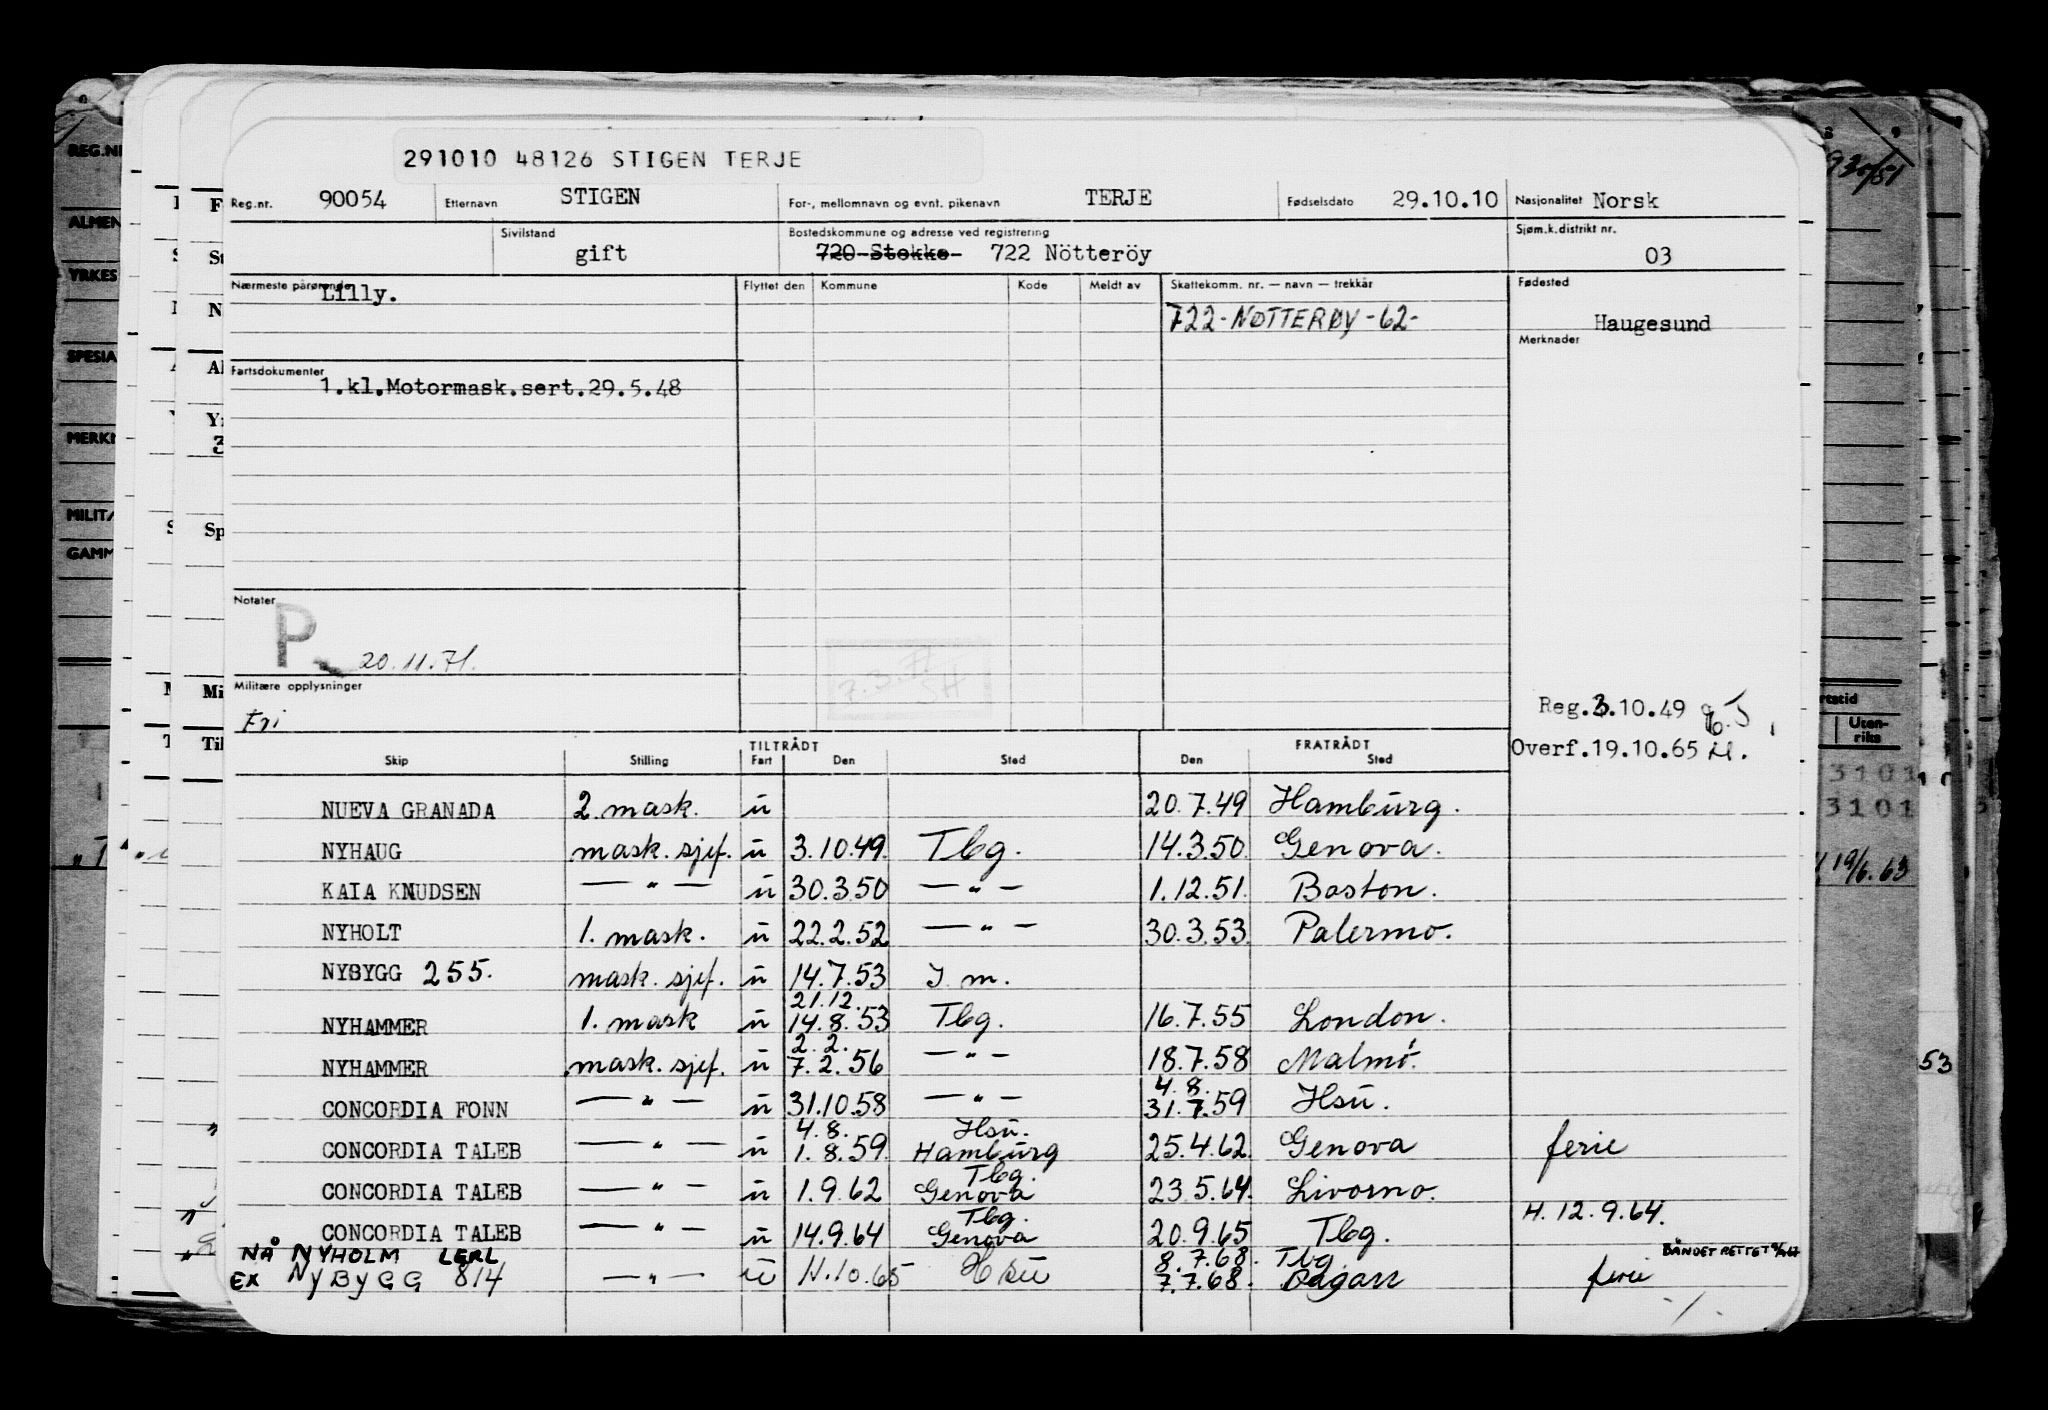 291010 48126 STIGEN TERJE
Reg.nr. 90054 Etternavn STIGEN For-, mellomnavn og evnt. pikenavn TERJE Fødselsdato 29.10.10 Nasjonalitet Norsk
Sivilstand gift Bostedskommune og adresse ved registrering 720 Stokke 722 Nötteröy Sjøm.k.distrikt nr. 03
Nærmeste pårørende Lilly. Flyttet den Kommune Kode Meldt av Skattekomm. nr. — navn — trekkår Fødested
722-NØTTERØY-62- Haugesund
Merknader
Fartsdokumenter
1.kl.Motormask.sert.29.5.48
Notater
P 20.11.71.
7.3.77 SH
Militære opplysninger
Fri
Reg.3.10.49
Overf.19.10.65
TILTRÅDT FRATRÅDT
Skip Stilling Fart Den Sted Den Sted
NUEVA GRANADA 2. mask. u 20.7.49 Hamburg.
NYHAUG mask. sjef. u 3.10.49. Tbg. 14.3.50. Genova.
KAIA KNUDSEN — " — u 30.3.50 — " — 1.12.51. Boston.
NYHOLT 1. mask. u 22.2.52 — " — 30.3.53. Palermo.
NYBYGG 255. mask. sjef. u 14.7.53 I m.
21.12.
NYHAMMER 1. mask u 14.8.53 Tbg. 16.7.55 London.
2.2.
NYHAMMER mask. sjef. u 7.2.56 — " — 18.7.58 Malmö.
4.8.
CONCORDIA FONN — " — u 31.10.58 — " — 31.7.59 Hsu.
4.8. Hsu.
CONCORDIA TALEB — " — u 1.8.59. Hamburg 25.4.62. Genova ferie
Tbg.
CONCORDIA TALEB — " — u 1.9.62 Genova 23.5.64. Livorno.
Tbg. H. 12.9.64.
CONCORDIA TALEB — " — u 14.9.64 Genova 20.9.65 Tbg.
NÅ NYHOLM LERL 8.7.68. Tbg. BÅNDET RETTET
EX NYBYGG 814 — " — u 11.10.65 Hsu 7.7.68. ferie
-/-
REG.N
ALMEN
YRKES
SPESIA
MERKN
MILIT
GAMM
Utenriks
3101
3101
19/6.63
53